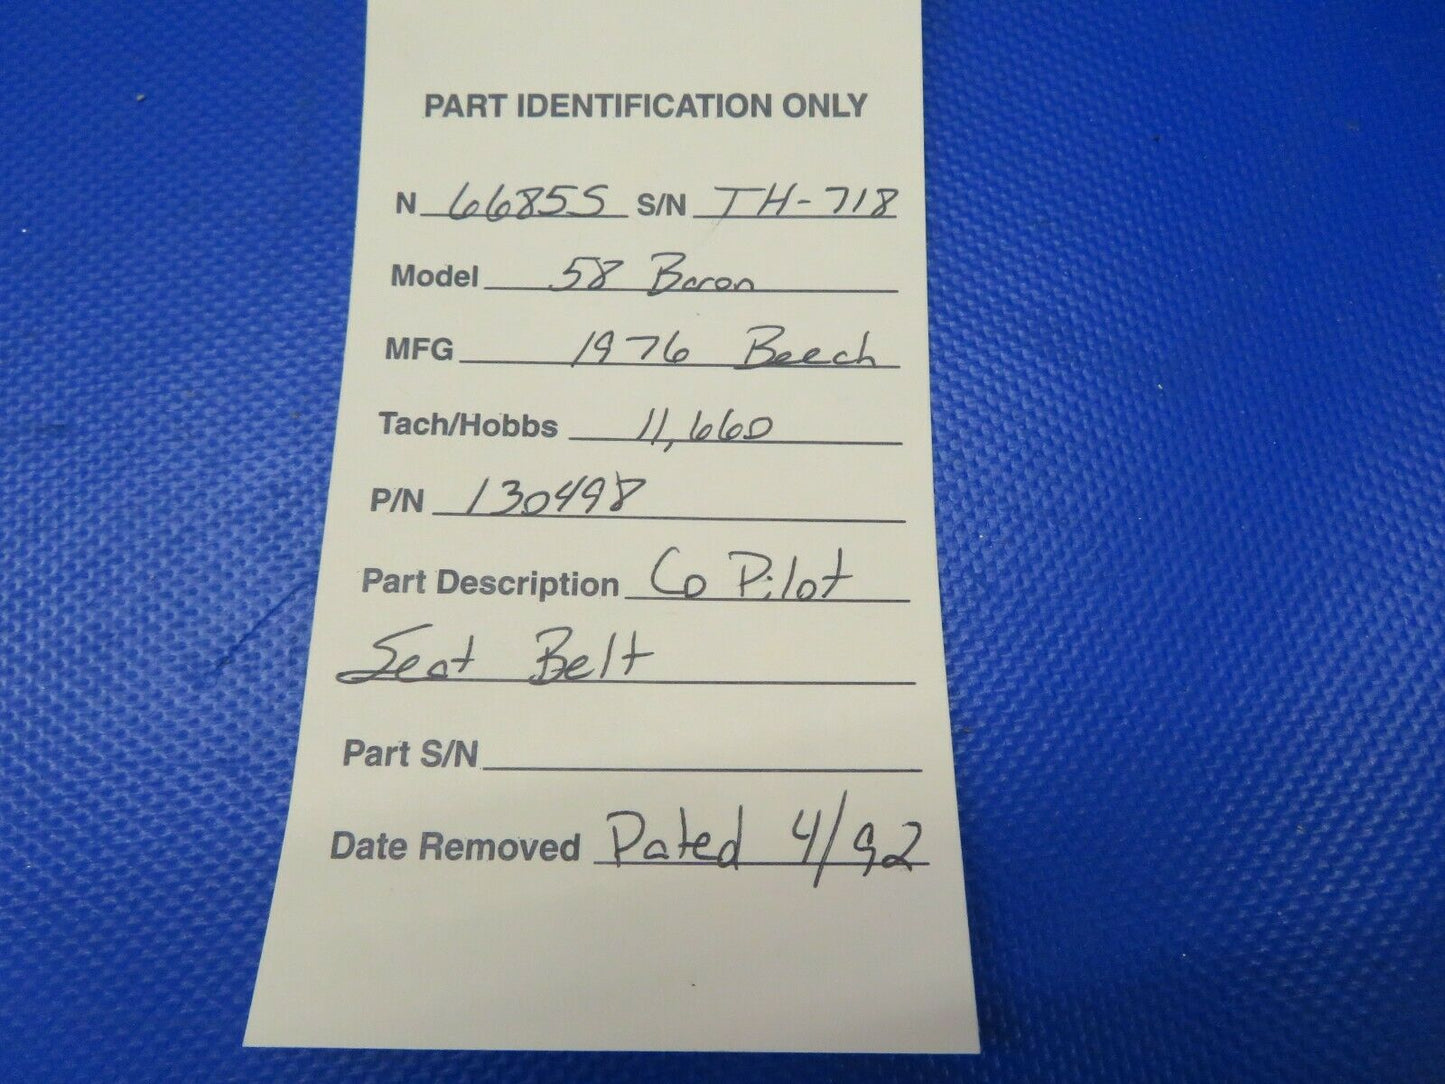 PART IDENTIFICATION ONLY
N 6685S S/N TH-718
Model 58 Baron
MFG 1976 Beech
Tach/Hobbs 11,660
P/N 130498
Part Description Co Pilot
Seat Belt
Part S/N
Date Removed Dated 4/92